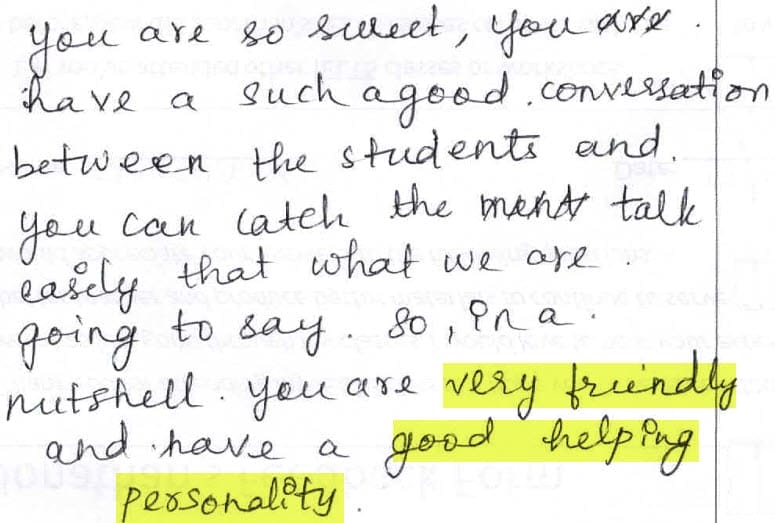 you are so sweet, you are.
have a such a good. conversation
between the students and.
you can catch the talk
easily that what we are.
going to say. So, in a.
nutshell. you are very friendly
and have a good helping
personality.